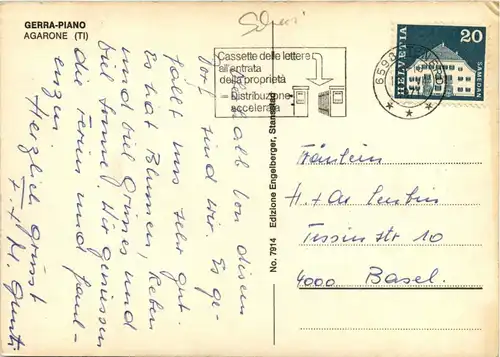 GERRA-PIANO
AGARONE (TI)
Cassette delle lettere
all'entrata
della proprietà
– Distribuzione
accelerata
HELVETIA
20
SAMEDAN
No. 7914 Edizione Engelberger, Stansstad
halb von diesem
Dorf sind wir. Es ge-
fällt uns sehr gut.
Es hat Blumen, Reben
und viel Grünes und
viel Sonne. Wir geniessen
die Ferien und faul-
enzen.
Herzlich grüsst
Fräulein
H. + 
Tessinstr 10
4000 Basel.